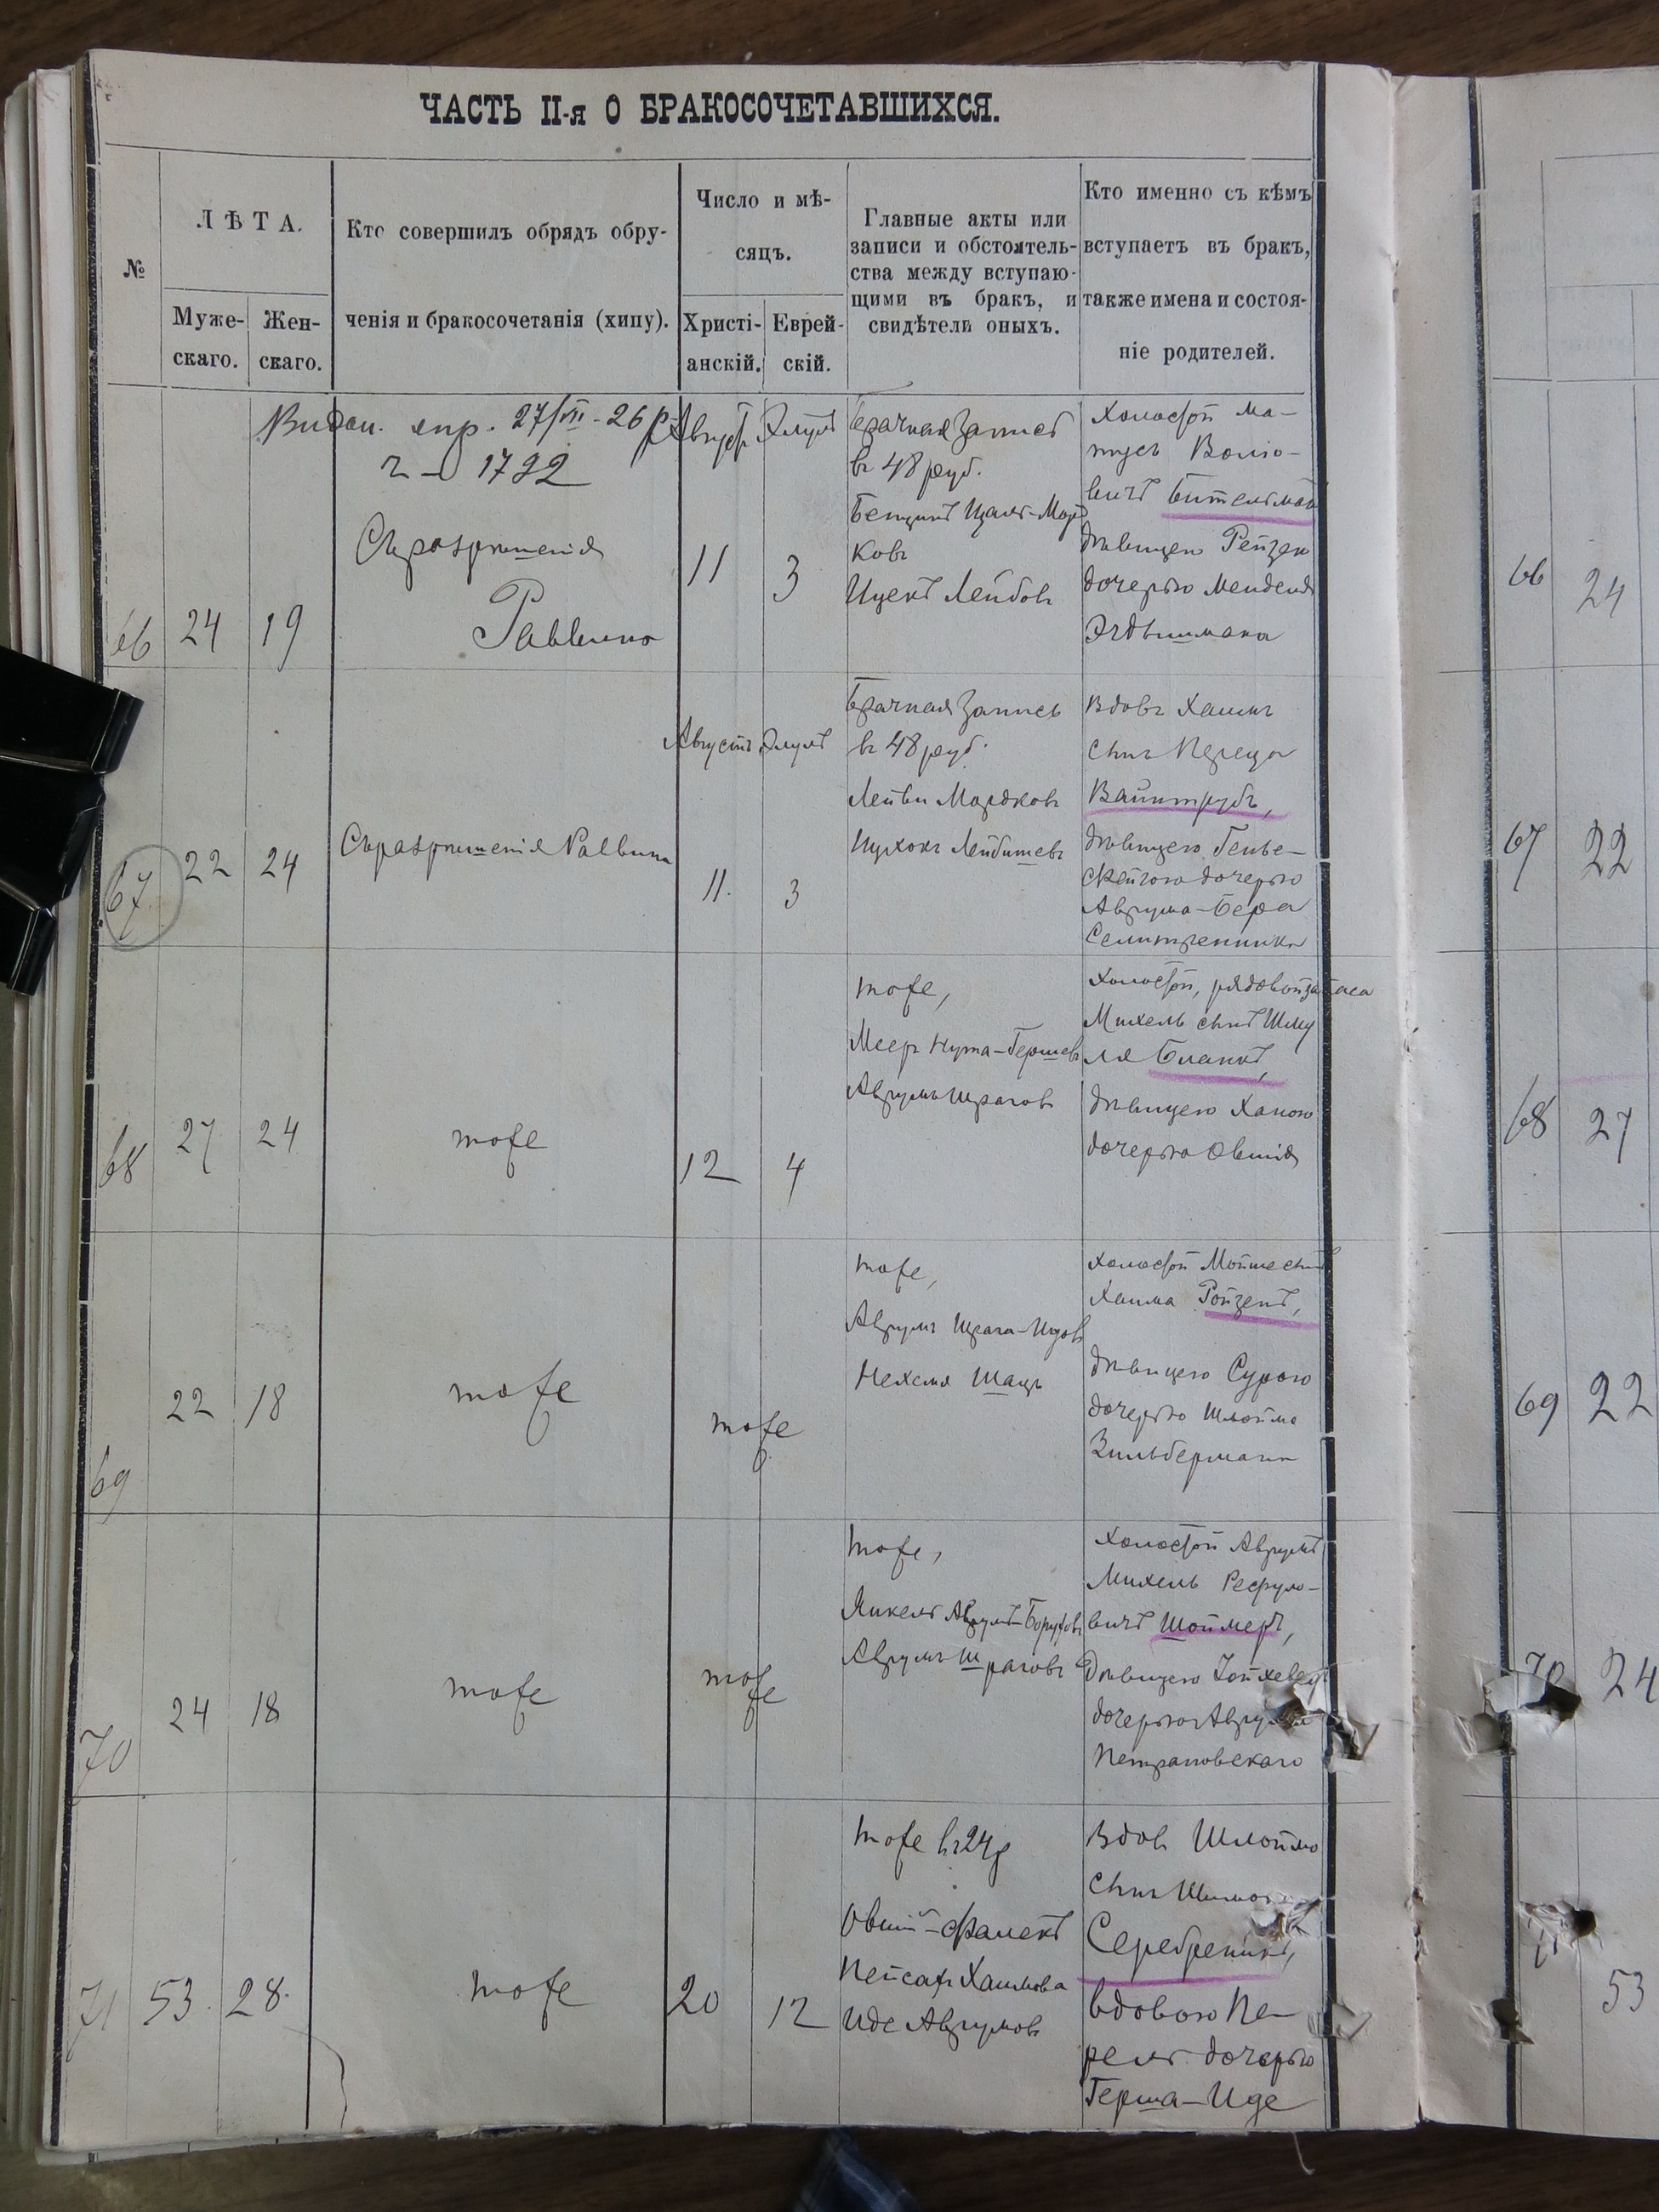 ЧАСТЬ II-я О БРАКОСОЧЕТАВШИХСЯ.
№
ЛѢТА.
Муже-
скаго.
Жен-
скаго.
Кто совершилъ обрядъ обру-
ченія и бракосочетанія (хипу).
Число и мѣ-
сяцъ.
Христі-
анскій.
Еврей-
скій.
Главные акты или
записи и обстоятель-
ства между вступаю-
щими въ бракъ, и
свидѣтели оныхъ.
Кто именно съ кѣмъ
вступаетъ въ бракъ,
также имена и состоя-
ніе родителей.
27/VII - 26 р.
ч - 1792
66
24
19
Съ разрѣшенія
Раввина
Августъ
11
Элулъ
3
Брачная запись
въ 48 руб.
Бенціонъ Цаль-Морд
ковъ
Ицекъ Лейбовъ
Холостой Ма-
тусъ Волю-
вичъ Бительман
дѣвицею Рейзею
дочерью Менделя
67
22
24
Съ разрѣшенія Раввина
Августъ
11.
Элулъ
3
Брачная запись
въ 48 руб.
Лейви Мордковъ
Иухокъ Лейбишевъ
Вдовъ Хаимъ
сынъ Переца
Вайнтрубъ,
дѣвицею Генье-
Фейгою дочерью
Аврума-Бера
Селитренника
68
27
24
тоже
12
4
тоже,
Мееръ Нута-Гершевъ
Аврумъ Шраговъ
Холостой, рядовой запаса
Михель сынъ Шму
ля Бланкъ,
дѣвицею Ханою
дочерью Овшія
69
22
18
тоже
тоже
тоже,
Аврумъ Шрага-Идовъ
Нехемя Шацъ
Холостой Мойше сынъ
Хаима Ройзенъ,
дѣвицею Сурою
дочерью Шлойма
Зильбермана
70
24
18
тоже
тоже
тоже,
Янкель Аврумъ-Боруховъ
Аврумъ Шраговъ
Холостой Аврумъ
Михель Рефуло-
вичъ Шоймеръ,
дѣвицею
дочерью Аврума
Петрановскаго
71
53.
28.
тоже
20
12
тоже въ 24 р
Овшій-Фалекъ
Пейсахъ Хаимова
Иде Аврумовъ
Вдовъ Шлоймо
сынъ
Серебреникъ,
вдовою Пе-
рель дочерью
Герша-Иде
66
24
67
22
68
27
69
22
70
24
53